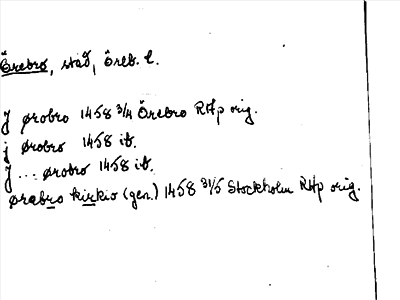 Örebro, stad, Öreb. l.
J ørobro 1458 3/4 Örebro RAp orig.
j ørobro 1458 ib.
J... ørobro 1458 ib.
ørabro kirkio (gen.) 1458 31/5 Stockholm RAp orig.